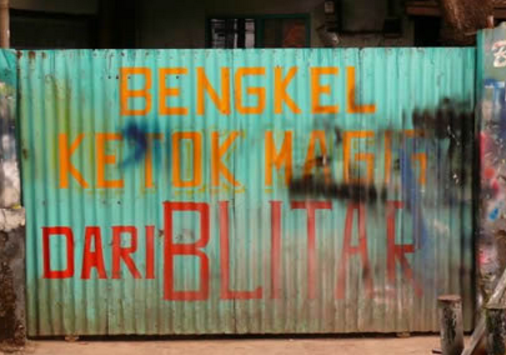 BENGKEL
KETOK MAGIG
DARI BLITAR